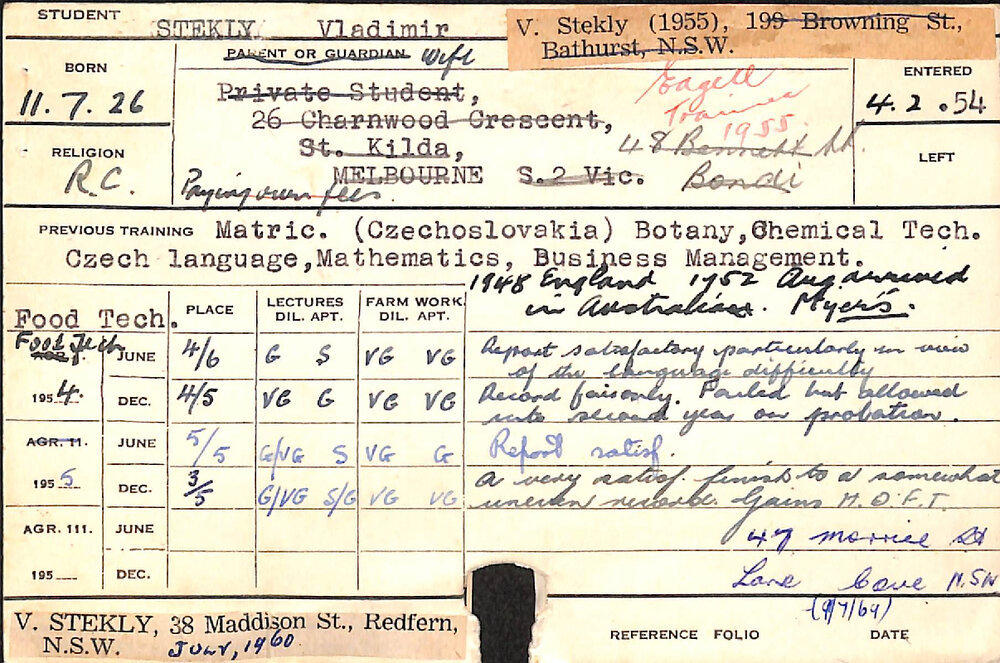 STUDENT
STEKLY Vladimir
V. Stekly (1955), 199 Browning St.,
Bathurst, N.S.W.
PARENT OR GUARDIAN Wife
BORN
11.7.26
Private Student,
26 Charnwood Crescent,
St. Kilda,
MELBOURNE S.2 Vic.
Paying own fees.
1955.
48 Bennett St.
Bondi
ENTERED
4.2.54
LEFT
RELIGION
R.C.
PREVIOUS TRAINING Matric. (Czechoslovakia) Botany, Chemical Tech.
Czech language, Mathematics, Business Management.
1948 England 1952 Aug arrived
in Australia. Myer's.
Food Tech.
PLACE
LECTURES
DIL. APT.
FARM WORK
DIL. APT.
Food Tech
JUNE 4/6 G S VG VG Report satisfactory particularly in view
of the language difficulty
1954. DEC. 4/5 VG G VG VG Record fair only. Failed but allowed
into second year on probation.
AGR. 11. JUNE 5/5 G/VG S VG G Report satisf.
1955 DEC. 3/5 G/VG S/G VG VG A very satisf. finish to a somewhat
uneven record. Gains H.D.F.T.
AGR. 111. JUNE
47 Morrice St
195 DEC.
Lane Cove NSW
(9/7/64)
V. STEKLY, 38 Maddison St., Redfern,
N.S.W. JULY, 1960
REFERENCE FOLIO DATE